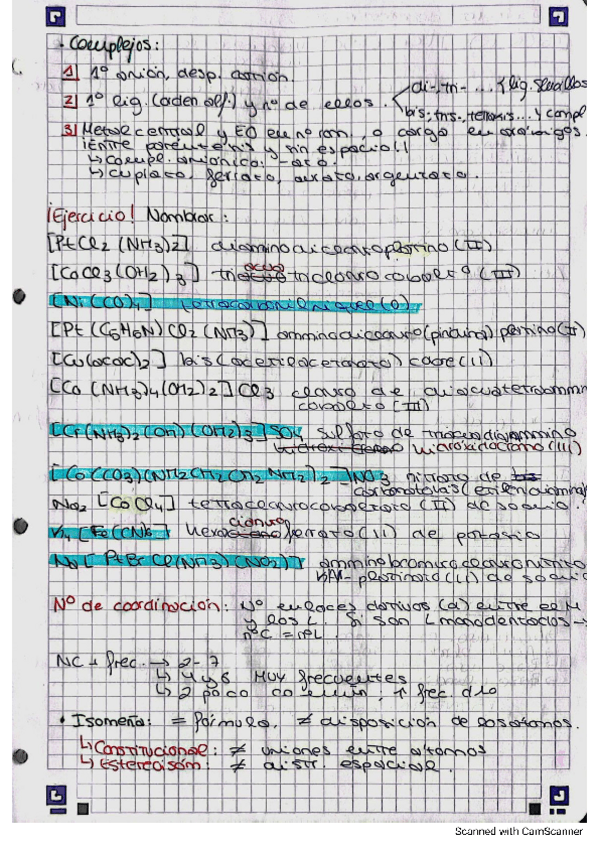 · Complejos:
1) 1º anión, desp. catión.
2) 1º lig. (orden alf.) y nº de ellos. di-, tri- ... lig. sencillos
bis, tris, tetrakis... y compl
3) Metal central y EO en nº rom., o carga en arábigos.
¡Entre paréntesis y sin espacio!!
↳ compl. aniónico: -ato.
↳ cuprato, ferrato, aurato, argentato.
¡Ejercicio! Nombrar:
[PtCl2(NH3)2] diaminodicloroplatino(II)
[CoCl3(OH2)3] triacuotriclorurocobalto(III)
[Ni(CO)4] tetracarbonilniquel(0)
[Pt(C5H5N)Cl2(NH3)] ammindicloruro(piridina)platino(II)
[Cu(acac)2] bis(acetilacetonato)cobre(II)
[Co(NH3)4(OH2)2]Cl3 cloruro de diacuatetraammin
cobalto(III)
[Cr(NH3)2(OH)(OH2)3]SO4 sulfato de triacuadiammino
hidroxidocromo(III)
[Co(CO3)(NH2CH2CH2NH2)2]NO3 nitrato de
carbonatobis(etilendiamina)
Na2[CoCl4] tetraclorurocobaltato(II) de sodio.
K4[Fe(CN)6] hexacianuroferrato(II) de potasio
Na[PtBrCl(NH3)(NO2)] amminobromurocloruronitrito
-platinato(II) de sodio
Nº de coordinación: Nº enlaces dativos (σ) entre el M
y los L. Si son L monodentados →
nºC = nºL.
NC + frec. → 2-7
↳ 4 y 6 MUY frecuentes
↳ 2 poco común; ↑ frec. d10
• Isomería: = fórmula, ≠ disposición de los átomos.
↳ Constitucional: ≠ uniones entre átomos
↳ Estereoisom: ≠ distr. espacial.
Scanned with CamScanner